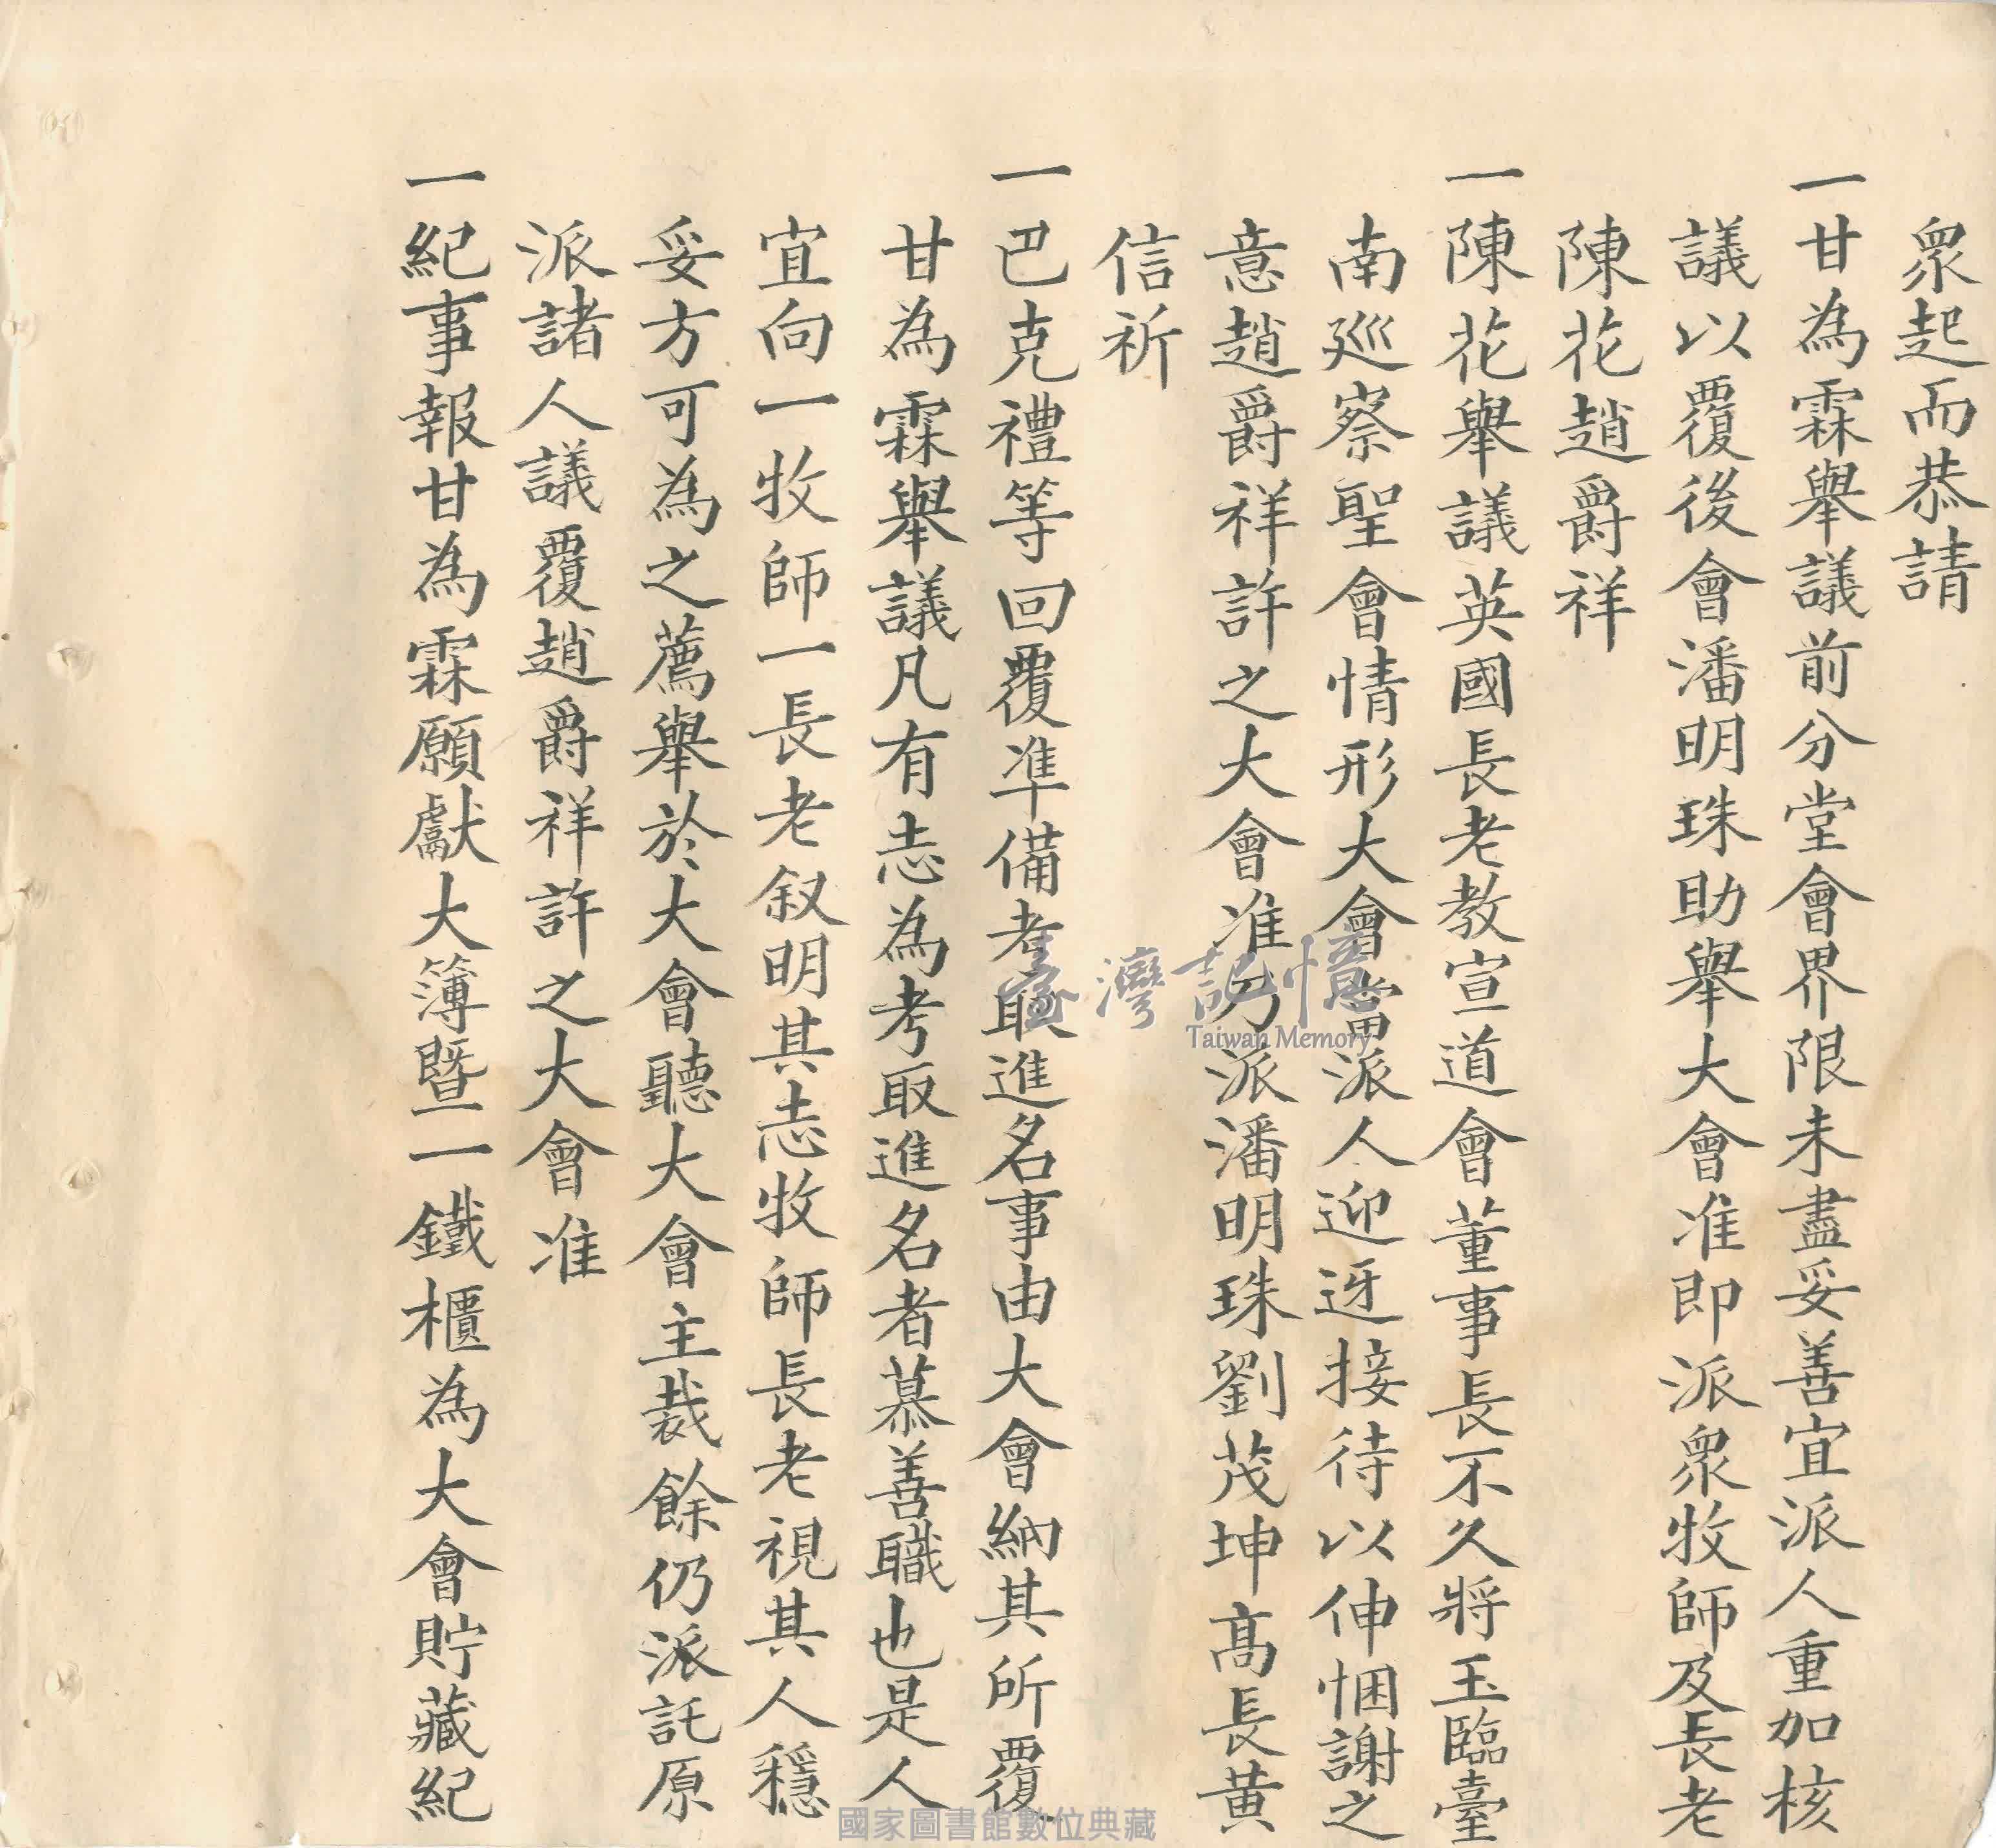 眾起而恭請
一甘為霖舉議前分堂會界限未盡妥善宜派人重加核
議以覆後會潘明珠助舉大會准即派眾牧師及長老
陳花趙爵祥
一陳花舉議英國長老教宣道會董事長不久將玉臨臺
南廵察聖會情形大會當派人迎迓接待以伸悃謝之
意趙爵祥許之大會准乃派潘明珠劉茂坤髙長黄
信祈
一巴克禮等回覆準備考取進名事由大會納其所覆
甘為霖舉議凡有志為考取進名者慕善職也是人
宜向一牧師一長老叙明其志牧師長老視其人穩
妥方可為之薦舉於大會聽大會主裁餘仍派託原
派諸人議覆趙爵祥許之大會准
一紀事報甘為霖願獻大簿暨一鐵櫃為大會貯藏紀
臺灣記憶
Taiwan Memory
國家圖書館數位典藏